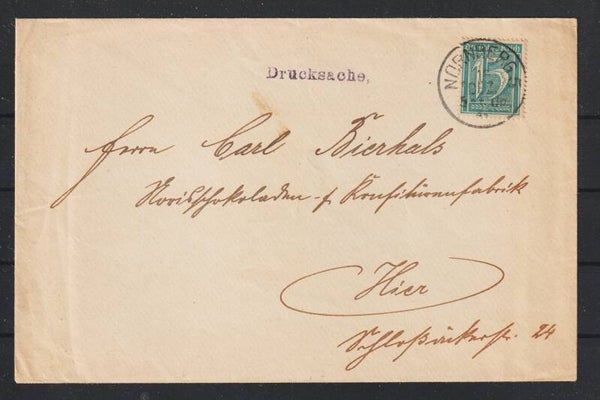 Drucksache,
NÜRNBERG
15
Herrn Carl Bierhals
Norisschokoladen- & Konfitürenfabrik
Hier
Schloßäckerstr. 24